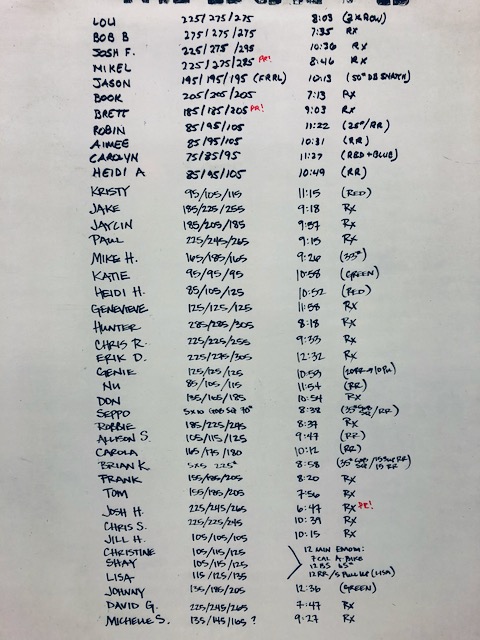 LOU 225/275/275 8:03 (2xROW)
BOB B 275/275/275 7:35 RX
JOSH F. 225/275/295 10:36 RX
MIKEL 225/275/285 PR! 8:46 RX
JASON 195/195/195 (FRRL) 10:13 (50# DB SNATCH)
BOOK 205/205/205 7:13 RX
BRETT 185/185/205 PR! 9:03 RX
ROBIN 85/95/105 11:22 (25#/RR)
AIMEE 85/95/105 10:31 (RR)
CAROLYN 75/85/95 11:27 (RED+BLUE)
HEIDI A 85/95/105 10:49 (RR)
KRISTY 95/105/115 11:15 (RED)
JAKE 185/225/255 9:18 RX
JAYLIN 185/205/185 9:57 RX
PAUL 225/245/265 9:15 RX
MIKE H. 165/185/165 9:26 (35#)
KATIE 95/95/95 10:58 (GREEN)
HEIDI H. 85/105/125 10:52 (RED)
GENEVIEVE 125/125/125 11:58 RX
HUNTER 285/285/305 8:18 RX
CHRIS R. 225/225/255 9:33 RX
ERIK D. 225/275/305 12:32 RX
GENIE 125/125/125 10:59
NU 85/105/115 11:54 (RR)
DON 135/165/185 10:54 RX
SEPPO 5x10 70# 8:38
ROBBIE 185/225/245 8:37 RX
ALLISON S. 105/115/125 9:47 (RR)
CAROLA 165/175/180 10:12 (RR)
BRIAN K 5x5 225# 8:58
FRANK 155/185/205 8:20 RX
TOM 155/185/205 7:56 RX
JOSH H. 225/245/265 6:47 RX PR!
CHRIS S. 225/225/245 10:39 RX
JILL H. 105/105/105 10:15 RX
CHRISTINE 105/115/125 12 MIN EMOM:
SHAY 105/115/125 7 CAL A-BIKE
12 BS 65#
LISA 115/125/135 12RR/5 PULLUP (LISA)
JOHNNY 135/185/205 12:36 (GREEN)
DAVID G. 225/245/265 7:47 RX
MICHELLE S. 135/145/165? 9:27 RX